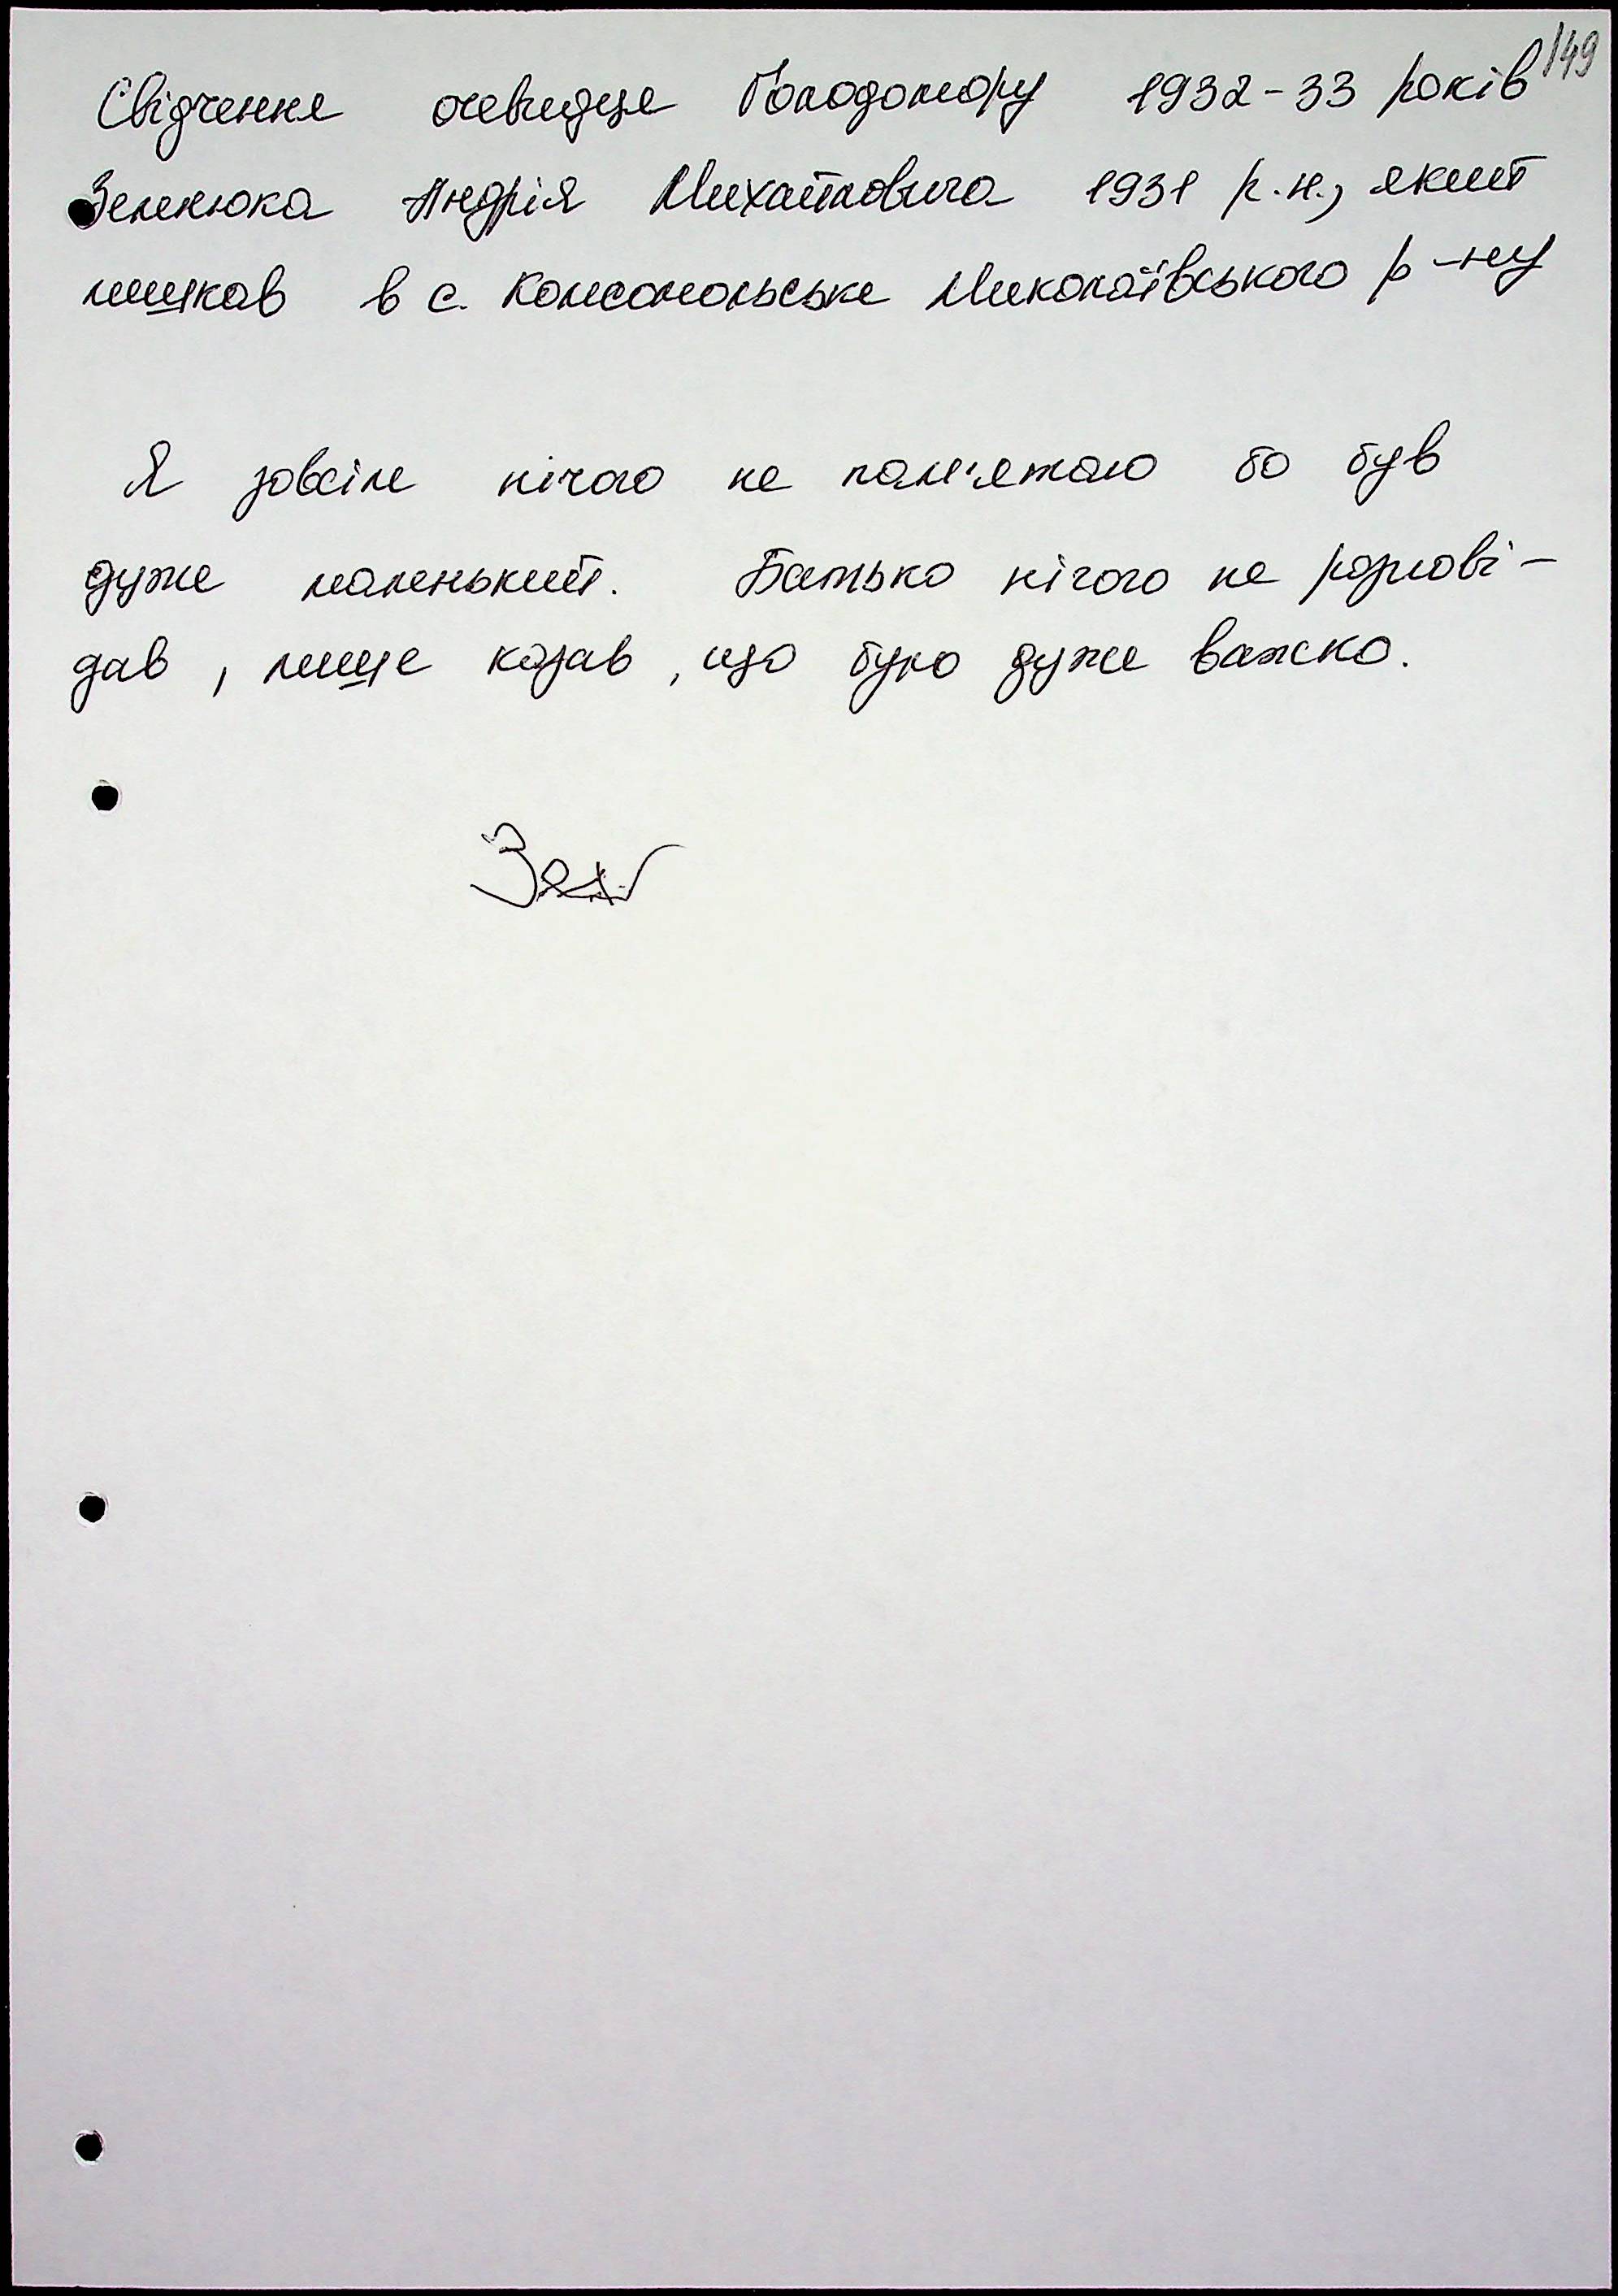 149
Свідчення очевидця Голодомору 1932-33 років
Зеленюка Андрія Михайловича 1931 р.н., який
мешкав в с. Комсомольське Миколаївського р-ну
Я зовсім нічого не пам'ятаю бо був
дуже маленький. Батько нічого не розпові-
дав, лише казав, що було дуже важко.